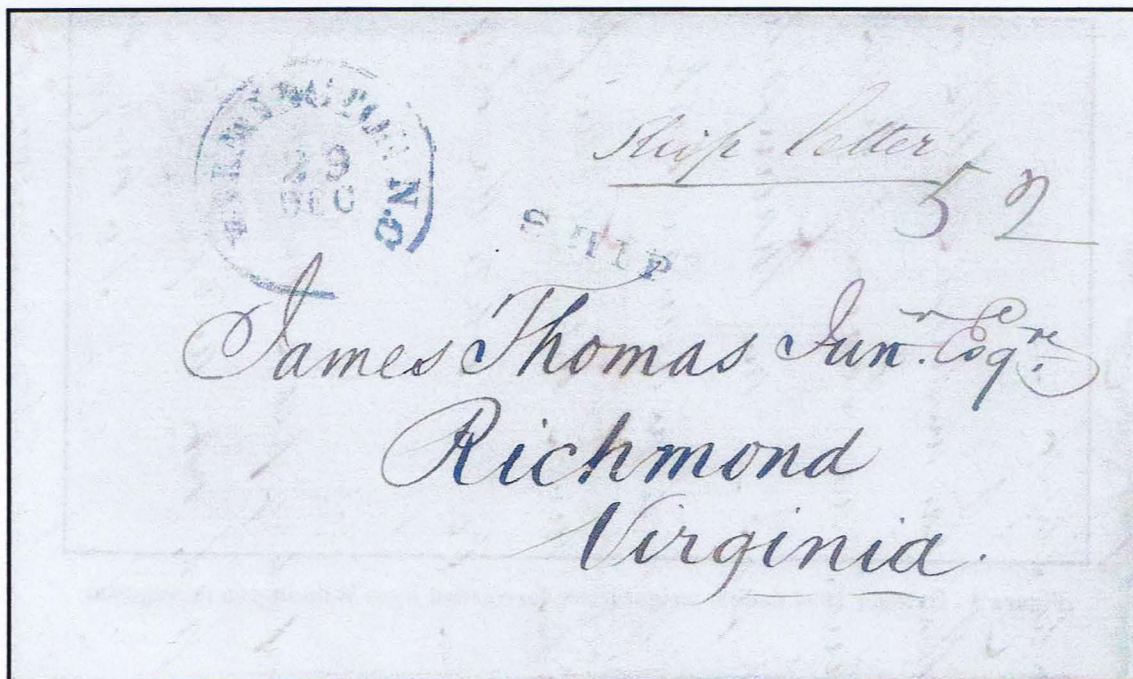 WILMINGTON N.C
29
DEC
Ship letter
52
SHIP
James Thomas Junr. Esqre.
Richmond
Virginia.